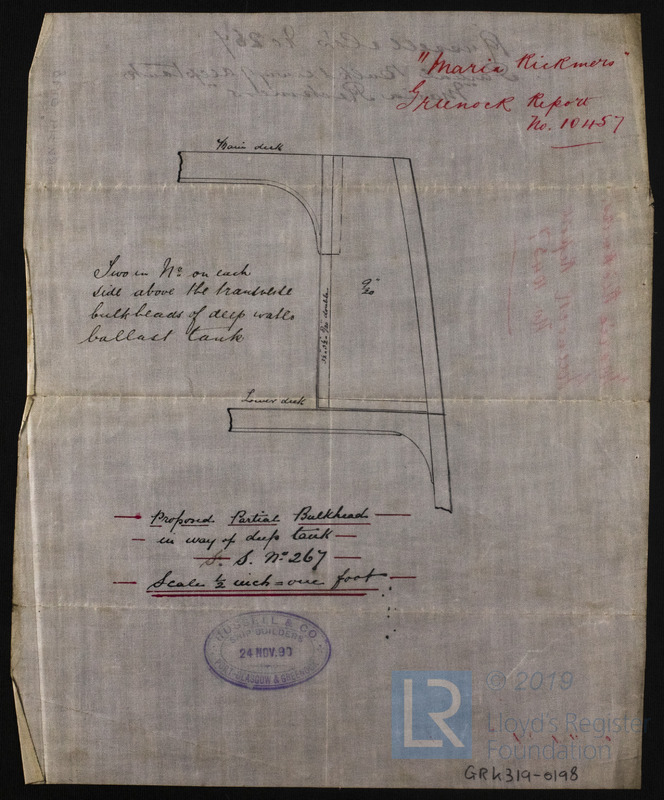 "Maria Rickmers"
Greenock Report
No. 10457
Main deck
Two in No. on each
side above the transverse
bulkheads of deep water
ballast tank
9/20
Lower deck
Proposed Partial Bulkhead
in way of deep tank
S. S. No. 267
Scale 1/2 inch = one foot
RUSSELL & CO.
SHIPBUILDERS
24 NOV. 90
PORT-GLASGOW & GREENOCK
LR
© 2019
Lloyd's Register
Foundation
GRK319-0198